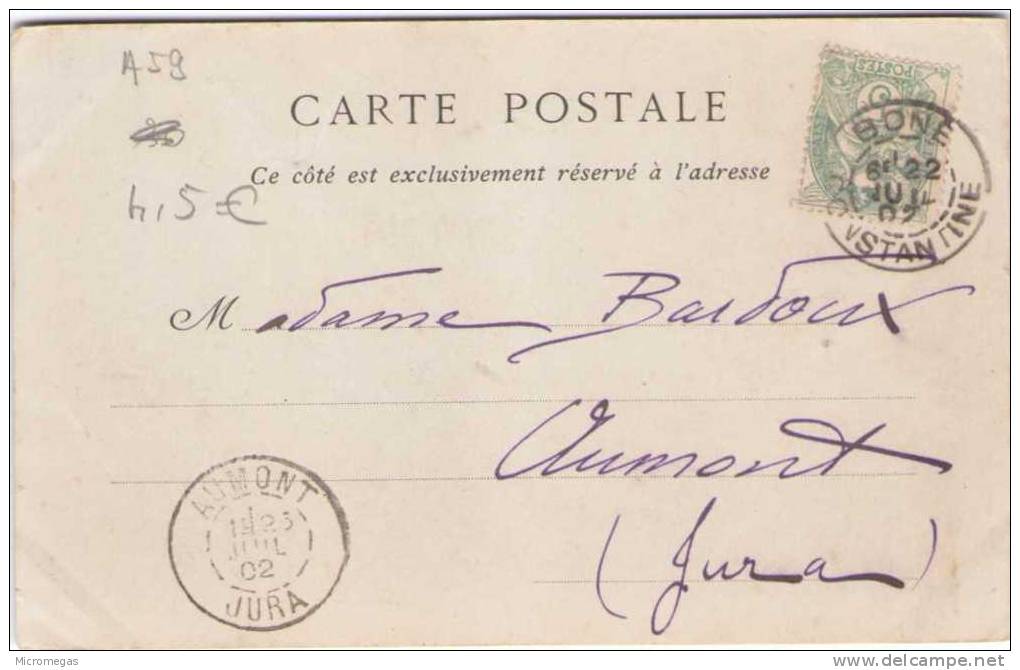 A59
CARTE POSTALE
Ce côté est exclusivement réservé à l'adresse
4,5 €
POSTES
BONE
6E 22
JUIL
02
CONSTANTINE
Madame Bardoux
Aumont
(Jura)
AUMONT
1E 25
JUIL
02
JURA
Micromegas
delcampe.net